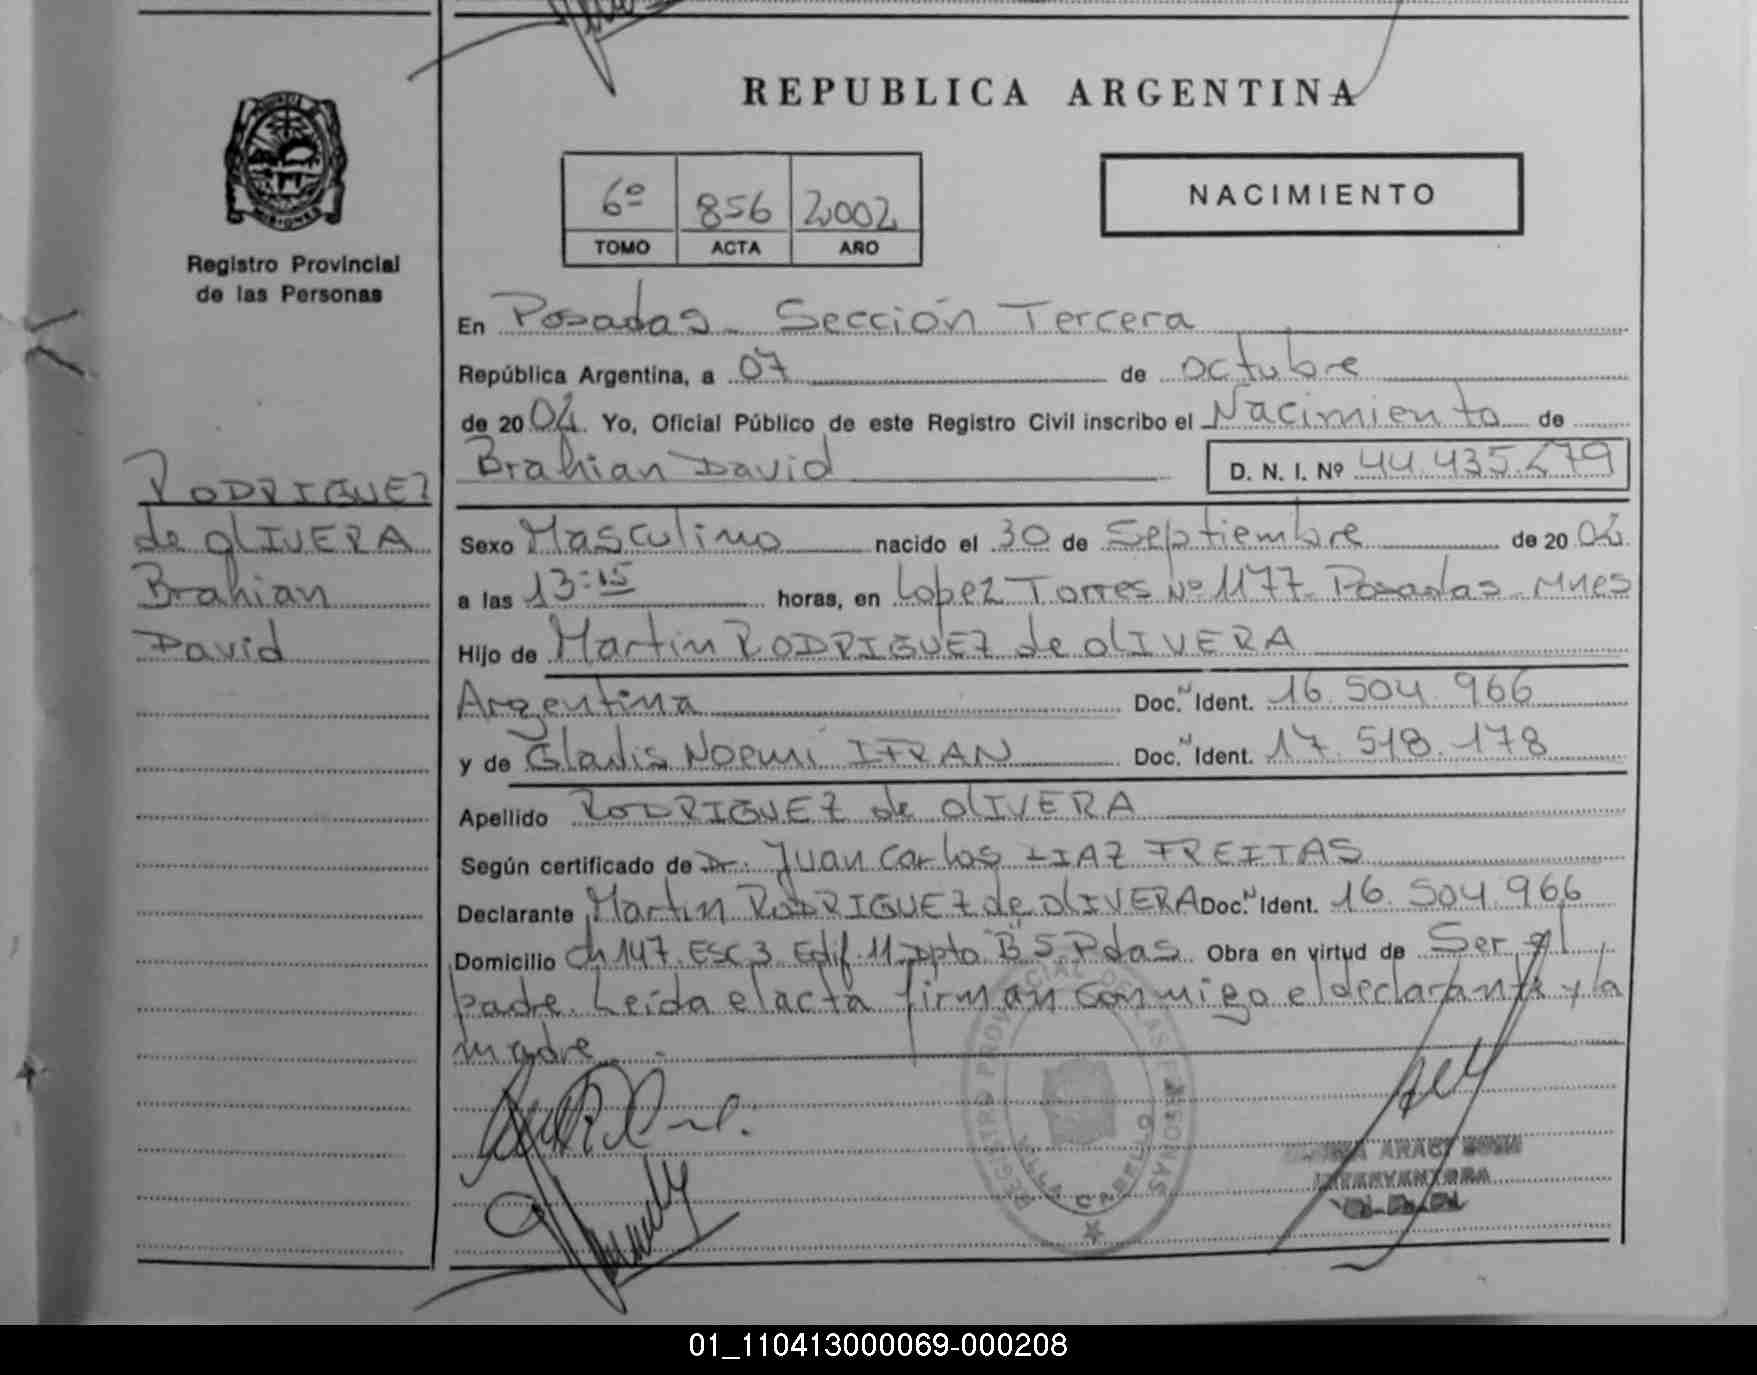 REPUBLICA ARGENTINA
NACIMIENTO
6º 856 2002
TOMO ACTA AÑO
MISIONES
Registro Provincial
de las Personas
En Posadas - Sección Tercera
República Argentina, a 07 de octubre
de 20 02. Yo, Oficial Público de este Registro Civil inscribo el Nacimiento de
Brahian David D. N. I. Nº 44.435.279
RODRIGUEZ
de OLIVERA
Brahian
David
Sexo Masculino nacido el 30 de Septiembre de 20 02.
a las 13:15 horas, en Lopez Torres Nº 1177- Posadas - Mnes
Hijo de Martin RODRIGUEZ de OLIVERA
Argentina Doc. N Ident. 16.504.966
y de Gladis Noemi IFRAN Doc. N Ident. 17.518.178
Apellido RODRIGUEZ de OLIVERA
Según certificado de Dr. Juan Carlos FREITAS
Declarante Martin RODRIGUEZ de OLIVERA Doc. N Ident. 16.504.966
Domicilio Ch 147. Esc 3 Edif. 11 Dpto "B" 5. Pdas. Obra en virtud de Ser el
padre. Leída el acta firman conmigo el declarante y la
madre.
REGISTRO PROVINCIAL DE LAS PERSONAS
VILLA CABELLO
MISIONES
ARACI
INTERVENTORA
01_110413000069-000208